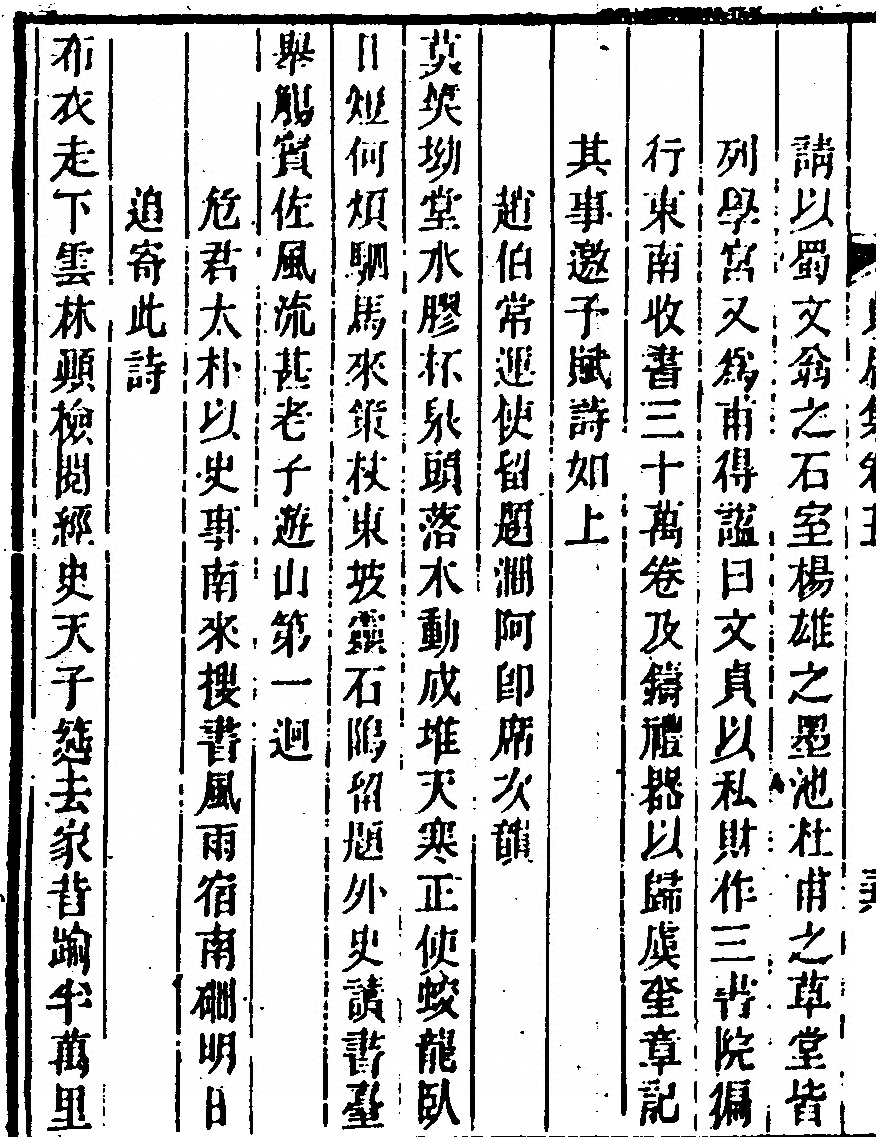 請以蜀文翁之石室楊雄之墨池杜甫之草堂皆
列學宮又為甫得諡曰文貞以私財作三書院徧
行東南收書三十萬卷及鑄禮器以歸虞奎章記
其事邀予賦詩如上
趙伯常運使留題澗阿即席次韻
莫笑坳堂水膠杯泉頭落木動成堆天寒正使蛟龍臥
日短何煩駟馬來策杖東坡靈石隖留題外史讀書臺
舉觴賓佐風流甚老子遊山第一迴
危君太朴以史事南來搜書風雨宿南磵明日
追寄此詩
布衣走下雲林顛檢閱經史天子筵去家昔踰半萬里